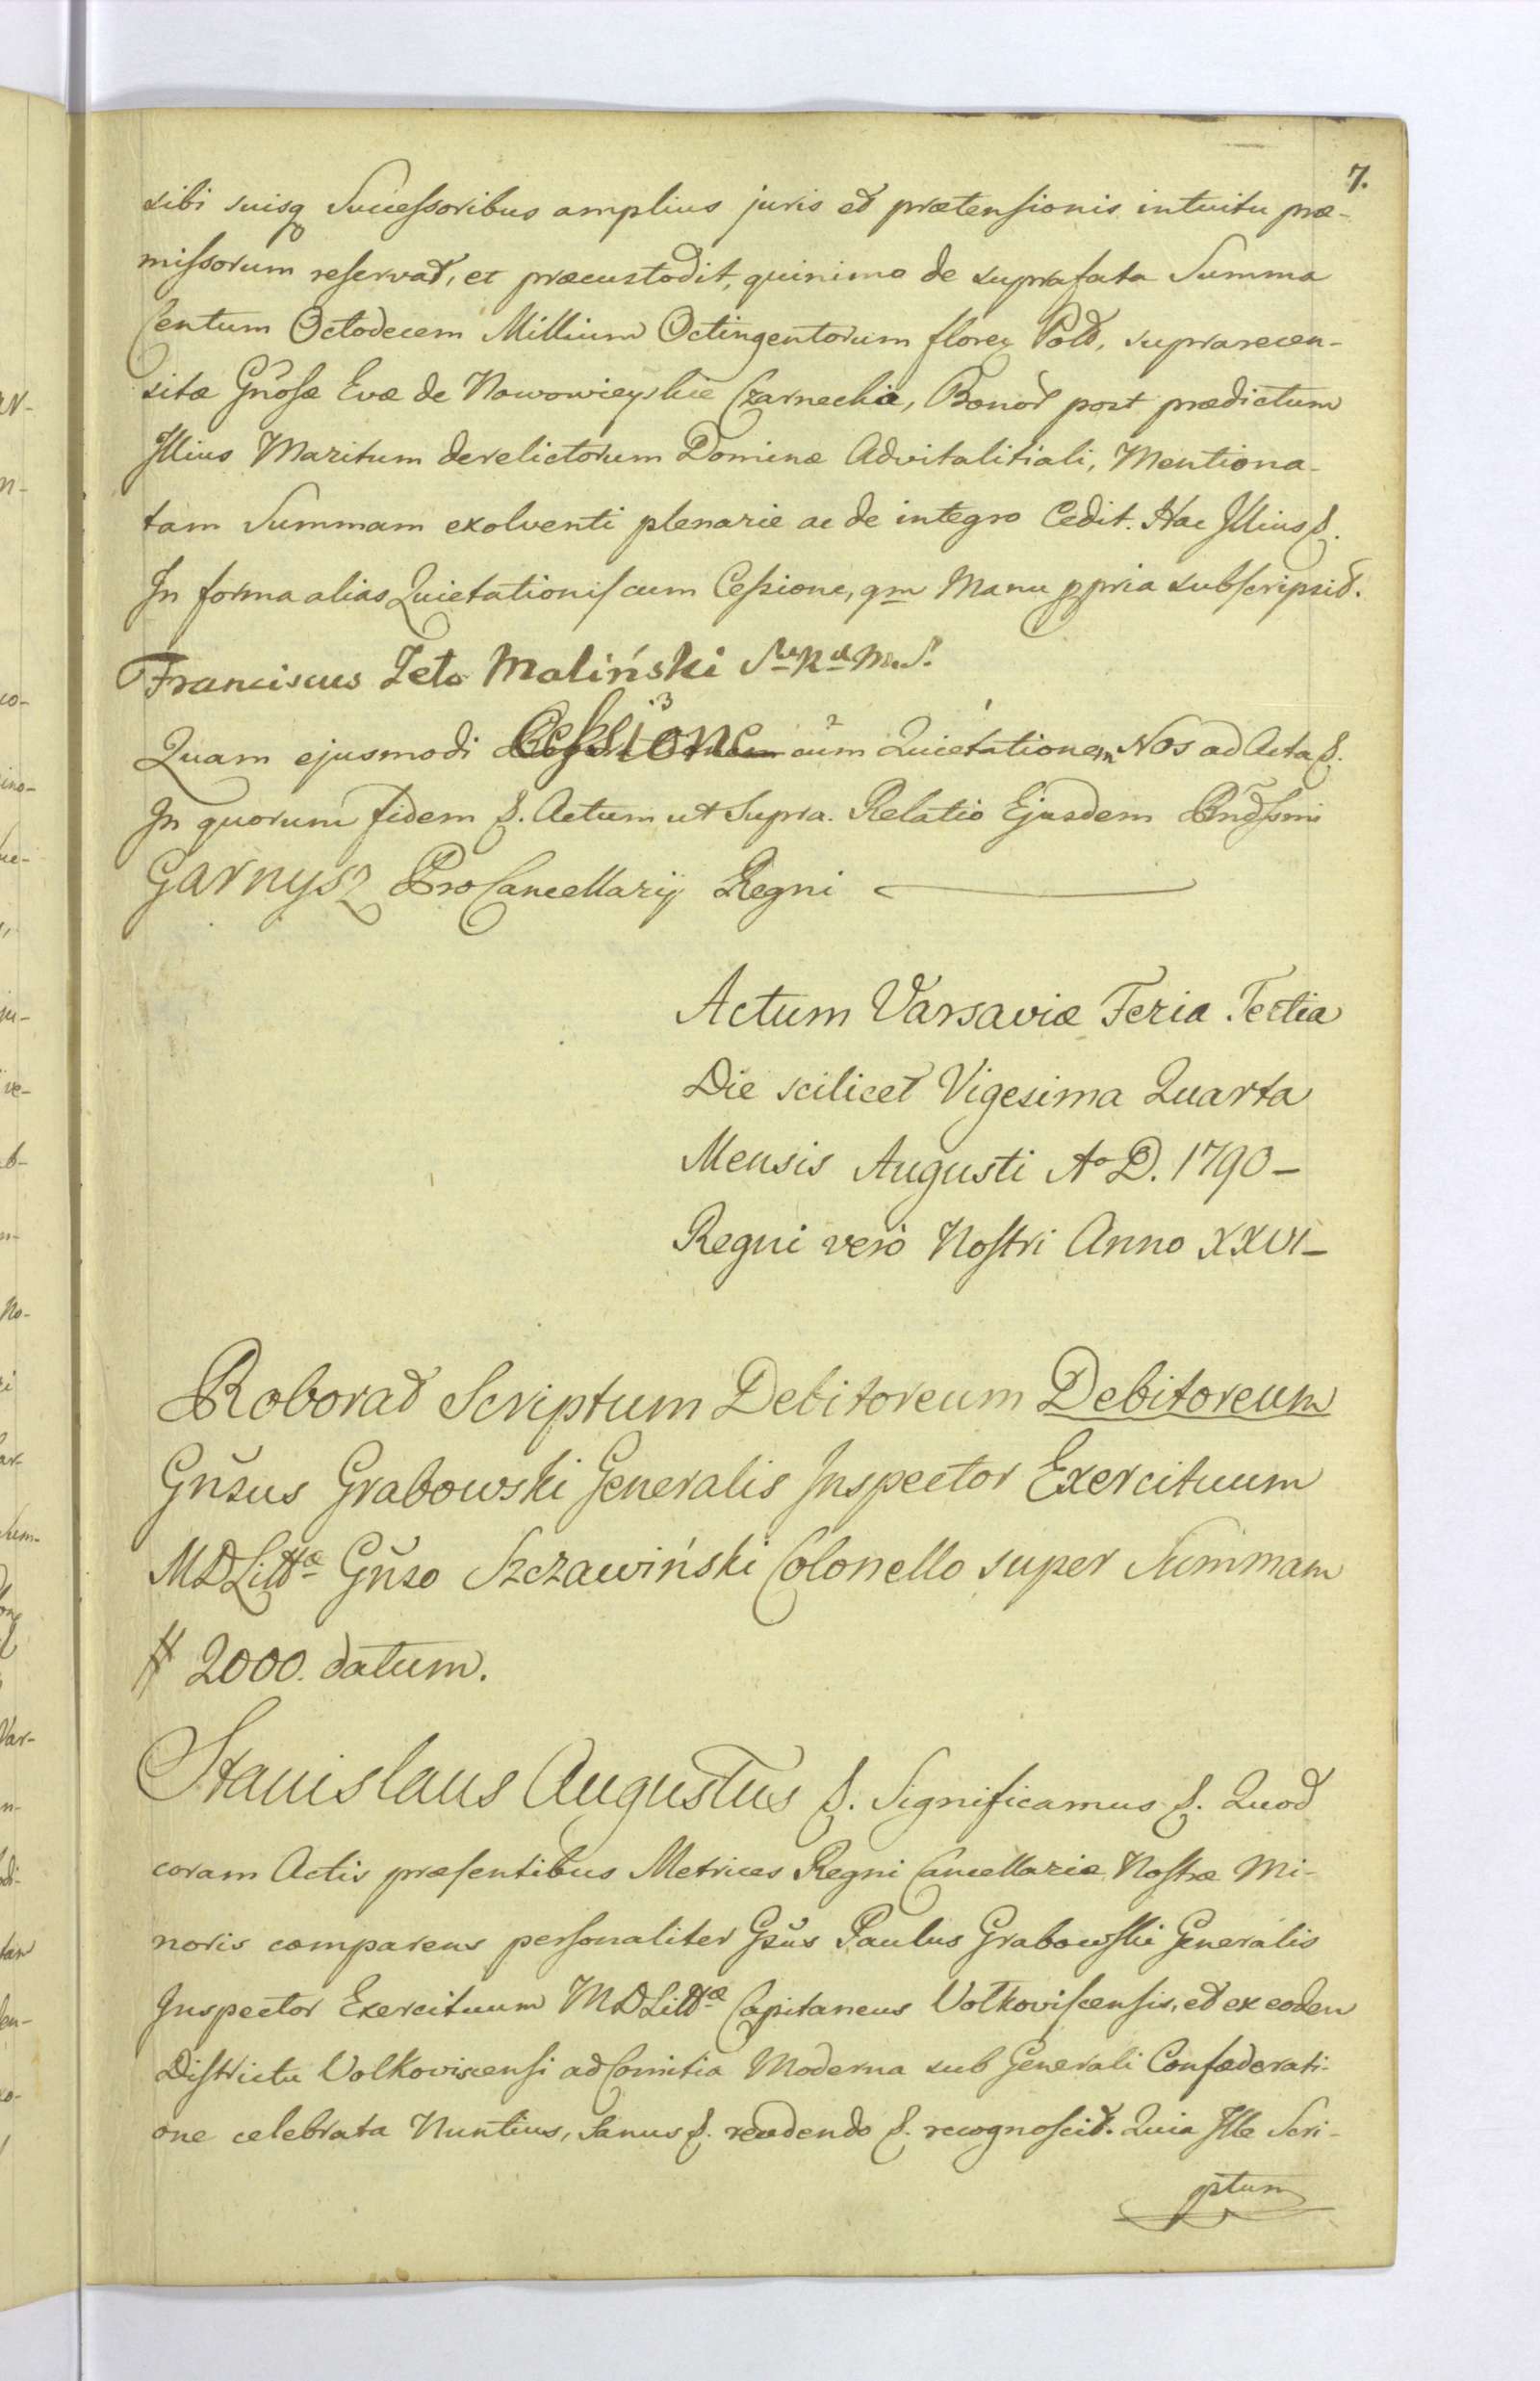 7.
sibi suisq Successoribus amplius juris et prætensionis intuitu præ-
missorum reservat, et præcustodit, quinimo de suprafata Summa
Centum Octodecem Millium Octingentorum floren Pold, suprarecen-
sitæ Gnosæ Evæ de Nowowieyskie Czarnecka, Bonor post prædictum
Illius Maritum derelictorum Dominæ Advitalitiali, Mentiona-
tam Summam exolventi plenarie ac de integro Cedit. Hac Illius &.
In forma alias Quietationis cum Cessione, qm Manu ppria subscripsit.
Franciscus Maliński
Quam ejusmodi Cessione 3 cum 2 Quietationem 1 Nos ad Acta &.
In quorum fidem &. Actum ut Supra. Relatio Ejusdem
Garnysz ProCancellarij Regni
Actum Varsaviæ Feria Tertia
Die scilicet Vigesima Quarta
Mensis Augusti Ao D. 1790 –
Regni vero Nostri Anno XXVI –
Roborat Scriptum Debitoreum Debitoreum
Gnsus Grabowski Generalis Inspector Exercituum
MDLittæ Gnso Szczawiński Colonello super Summam
# 2000. datum.
Stanislaus Augustus &. Significamus &. Quod
coram Actis præsentibus Metrices Regni Cancellariæ Nostræ Mi-
noris comparens personaliter Gsus Paulus Grabowski Generalis
Inspector Exercituum MDLittæ Capitaneus Volkoviscensis, et ex eodem
Districtu Volkoviscensi ad Comitia Moderna sub Generali Confæderati-
one celebrata Nuntius, Sanus &. reddendo &. recognoscit. Quia Ille Scri-
ptum